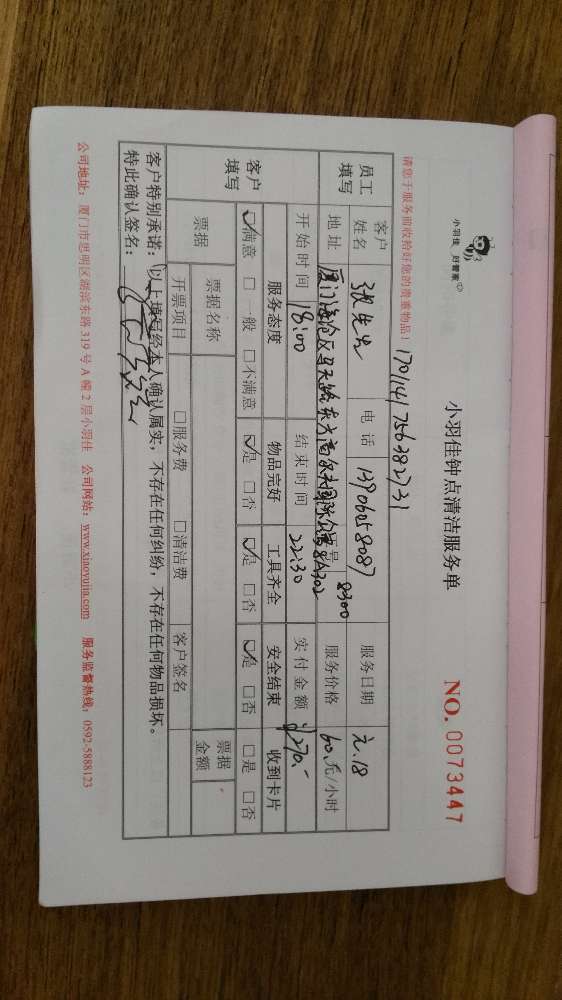 小羽佳 好管家
小羽佳钟点清洁服务单
NO. 0073447
请您于服务前收拾好您的贵重物品!
1701141756382731
员工填写 客户姓名 张先生 电话 13906058087 服务日期 元.18
地址 厦门海沧区 8A302 8300 服务价格 60元/小时
开始时间 18:00 结束时间 22:30 实付金额 ¥270.-
客户填写 服务态度 物品完好 工具齐全 安全结束 收到卡片
☑满意 □一般 □不满意 ☑是 □否 ☑是 □否 ☑是 □否 □是 □否
票据 票据名称 票据金额
开票项目 □服务费 □清洁费 客户签名
客户特别承诺:以上填写经本人确认属实,不存在任何纠纷,不存在任何物品损坏。
特此确认签名:
公司地址:厦门市思明区湖滨东路319号A幢2层小羽佳 公司网站:www.xiaoyujia.com 服务监督热线:0592-5888123